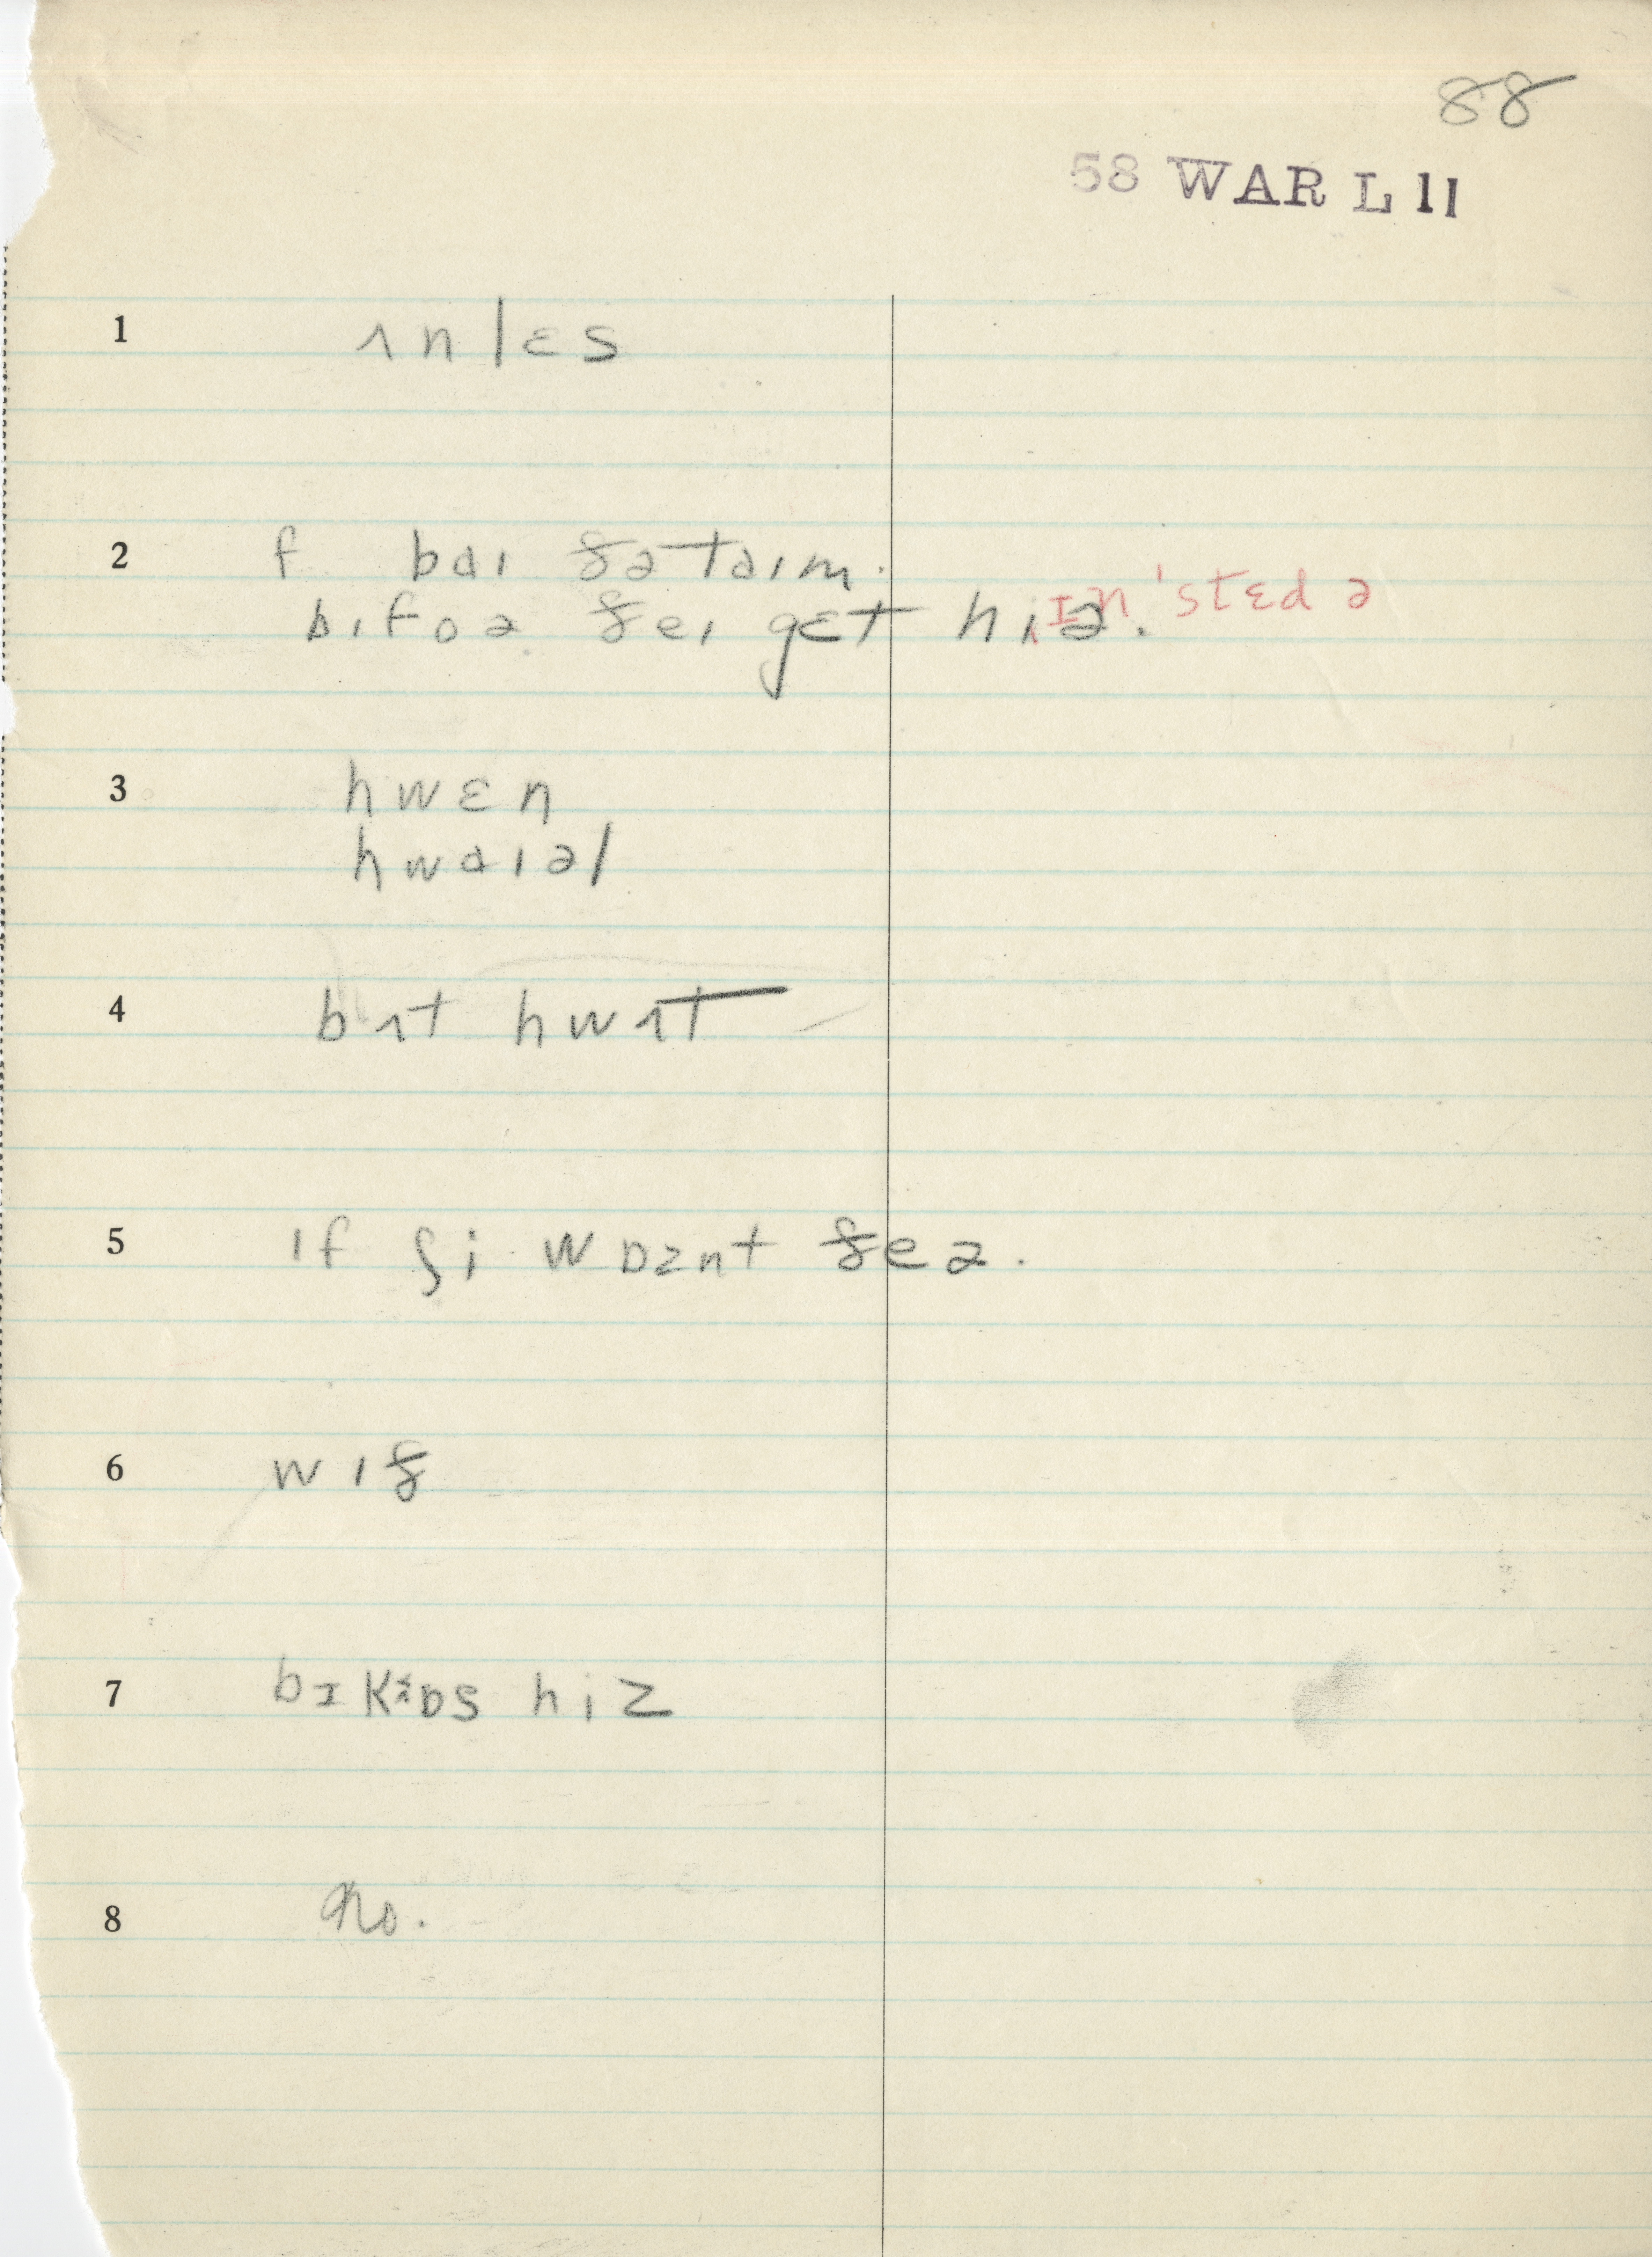 88
58 WAR L 11
1 ʌnlɛs
2 f baɪ ðə taɪm.
ɪn'stɛd ə
bɪfoə ðeɪ gɛt hiə.
3 hwɛn
hwaɪəl
4 bʌt hwʌt
5 ɪf ʃi wɒznt ðeə.
6 wɪð
7 bɪkɒs hiz
8 No.